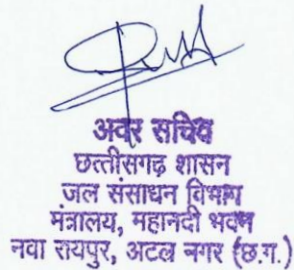 अवर सचिव
छत्तीसगढ़ शासन
जल संसाधन विभाग
मंत्रालय, महानदी भवन
नवा रायपुर, अटल नगर (छ.ग.)